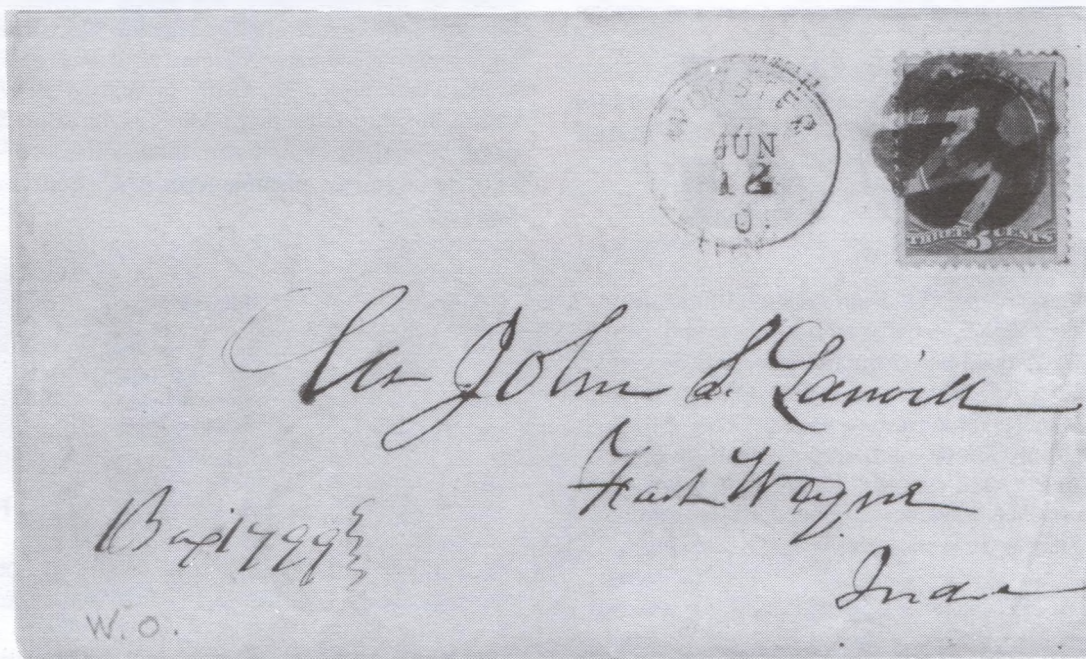 WOOSTER
JUN
12
O.
THREE 3 CENTS
John S. Lanvill
Fort Wayne
Inda
Box 1799
W.O.